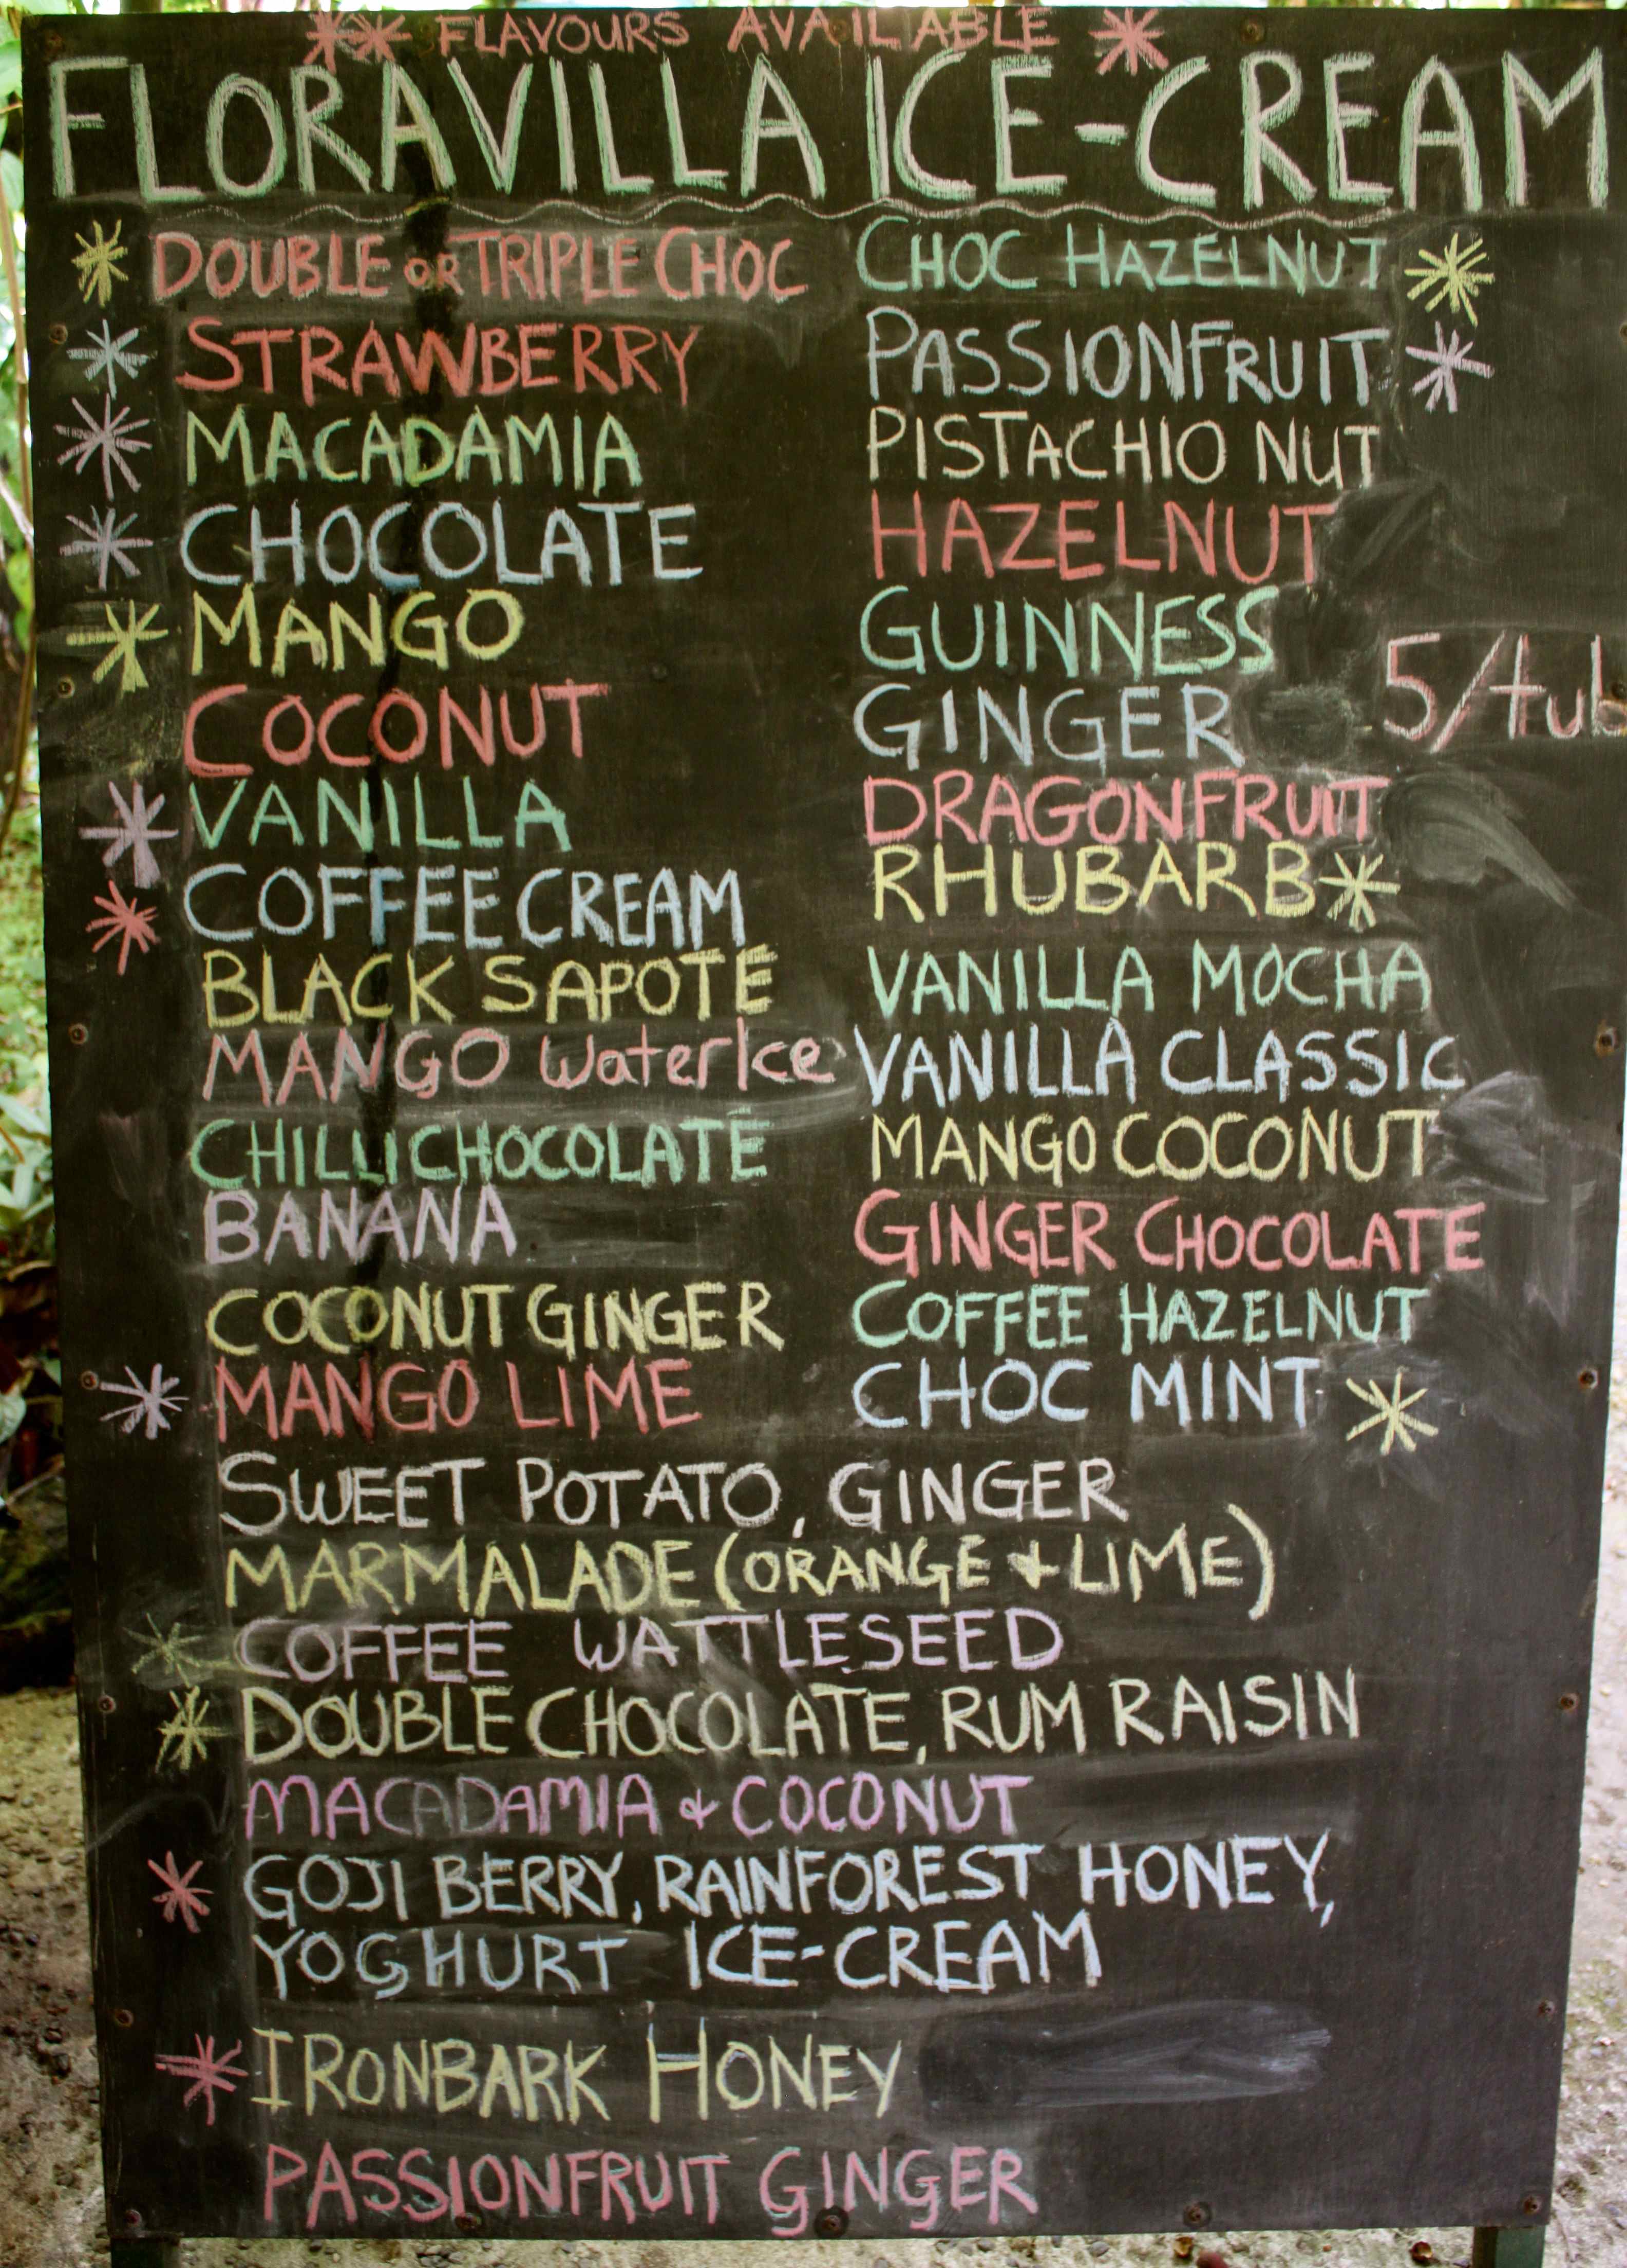 FLAVOURS AVAILABLE
FLORAVILLA ICE-CREAM
DOUBLE OR TRIPLE CHOC
STRAWBERRY
MACADAMIA
CHOCOLATE
MANGO
COCONUT
VANILLA
COFFEE CREAM
BLACK SAPOTE
MANGO WaterIce
CHILLI CHOCOLATE
BANANA
COCONUT GINGER
MANGO LIME
CHOC HAZELNUT
PASSIONFRUIT
PISTACHIO NUT
HAZELNUT
GUINNESS
GINGER
5/tub
DRAGONFRUIT
RHUBARB
VANILLA MOCHA
VANILLA CLASSIC
MANGO COCONUT
GINGER CHOCOLATE
COFFEE HAZELNUT
CHOC MINT
SWEET POTATO, GINGER
MARMALADE (ORANGE + LIME)
COFFEE WATTLESEED
DOUBLE CHOCOLATE, RUM RAISIN
MACADAMIA & COCONUT
GOJI BERRY, RAINFOREST HONEY,
YOGHURT ICE-CREAM
IRONBARK HONEY
PASSIONFRUIT GINGER